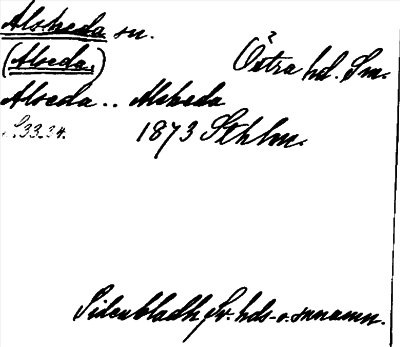 Alsheda sn.
(Alseda.) Östra hd. Sm.
Alseda .. Alsheda
s. 33-34. 1873 Sthlm.
Sidenbladh, Sv. hds- o. snnamn.